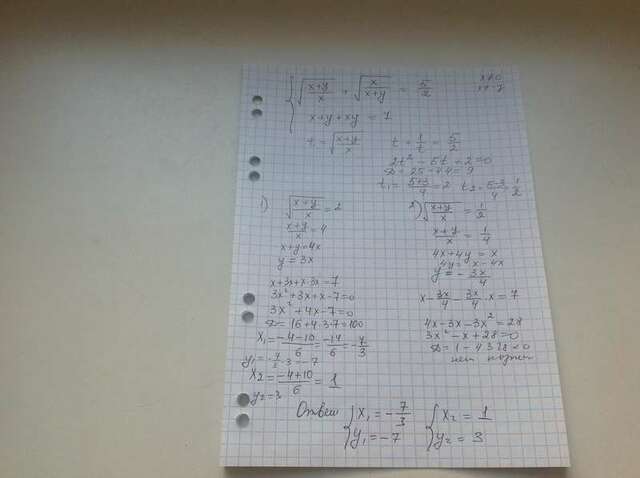 √((x+y)/x) + √(x/(x+y)) = 5/2
x≠0
x≠-y
x+y+xy = 7
t = √((x+y)/x)
t = 1/t = 5/2
2t² - 5t + 2 = 0
D = 25 - 4·4 = 9
t₁ = (5+3)/4 = 2 t₂ = (5-3)/4 = 1/2
1) √((x+y)/x) = 2
(x+y)/x = 4
x+y=4x
y = 3x
x+3x+x·3x=7
3x²+3x+x-7=0
3x²+4x-7=0
D = 16+4·3·7=100
x₁ = (-4-10)/6 = -14/6 = -7/3
y₁ = -7/3·3 = -7
x₂ = (-4+10)/6 = 1
y₂ = 3
2) √((x+y)/x) = 1/2
(x+y)/x = 1/4
4x+4y = x
4y = x-4x
y = -3x/4
x - 3x/4 - 3x/4 · x = 7
4x-3x-3x² = 28
3x² - x + 28 = 0
D = 1 - 4·3·28 < 0
нет корней
Ответ
x₁ = -7/3
y₁ = -7
x₂ = 1
y₂ = 3